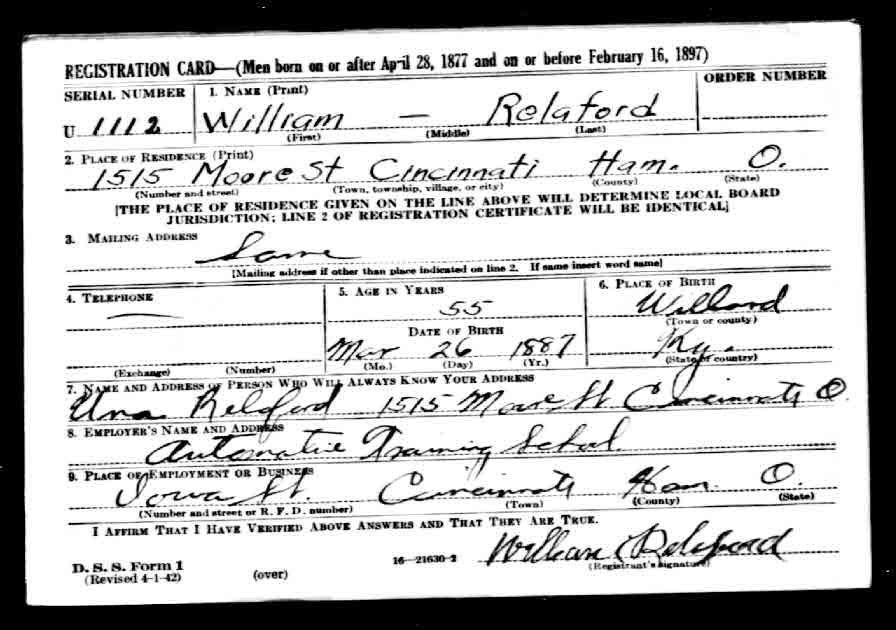 REGISTRATION CARD—(Men born on or after April 28, 1877 and on or before February 16, 1897)
SERIAL NUMBER 1. NAME (Print) ORDER NUMBER
U 1112 William — Relaford
(First) (Middle) (Last)
2. PLACE OF RESIDENCE (Print)
1515 Moore St Cincinnati Ham. O.
(Number and street) (Town, township, village, or city) (County) (State)
[THE PLACE OF RESIDENCE GIVEN ON THE LINE ABOVE WILL DETERMINE LOCAL BOARD
JURISDICTION; LINE 2 OF REGISTRATION CERTIFICATE WILL BE IDENTICAL]
3. MAILING ADDRESS
Same
[Mailing address if other than place indicated on line 2. If same insert word same]
4. TELEPHONE 5. AGE IN YEARS 6. PLACE OF BIRTH
— 55 Willard
(Town or county)
DATE OF BIRTH
Mar 26 1887 Ky.
(Exchange) (Number) (Mo.) (Day) (Yr.) (State or country)
7. NAME AND ADDRESS OF PERSON WHO WILL ALWAYS KNOW YOUR ADDRESS
Relford 1515 Moore St. Cincinnati O.
8. EMPLOYER'S NAME AND ADDRESS
Automative Training School
9. PLACE OF EMPLOYMENT OR BUSINESS
Iowa St. Cincinnati Ham. O.
(Number and street or R. F. D. number) (Town) (County) (State)
I AFFIRM THAT I HAVE VERIFIED ABOVE ANSWERS AND THAT THEY ARE TRUE.
D. S. S. Form 1 16—21630-2 William Relaford
(Revised 4-1-42) (over) (Registrant's signature)